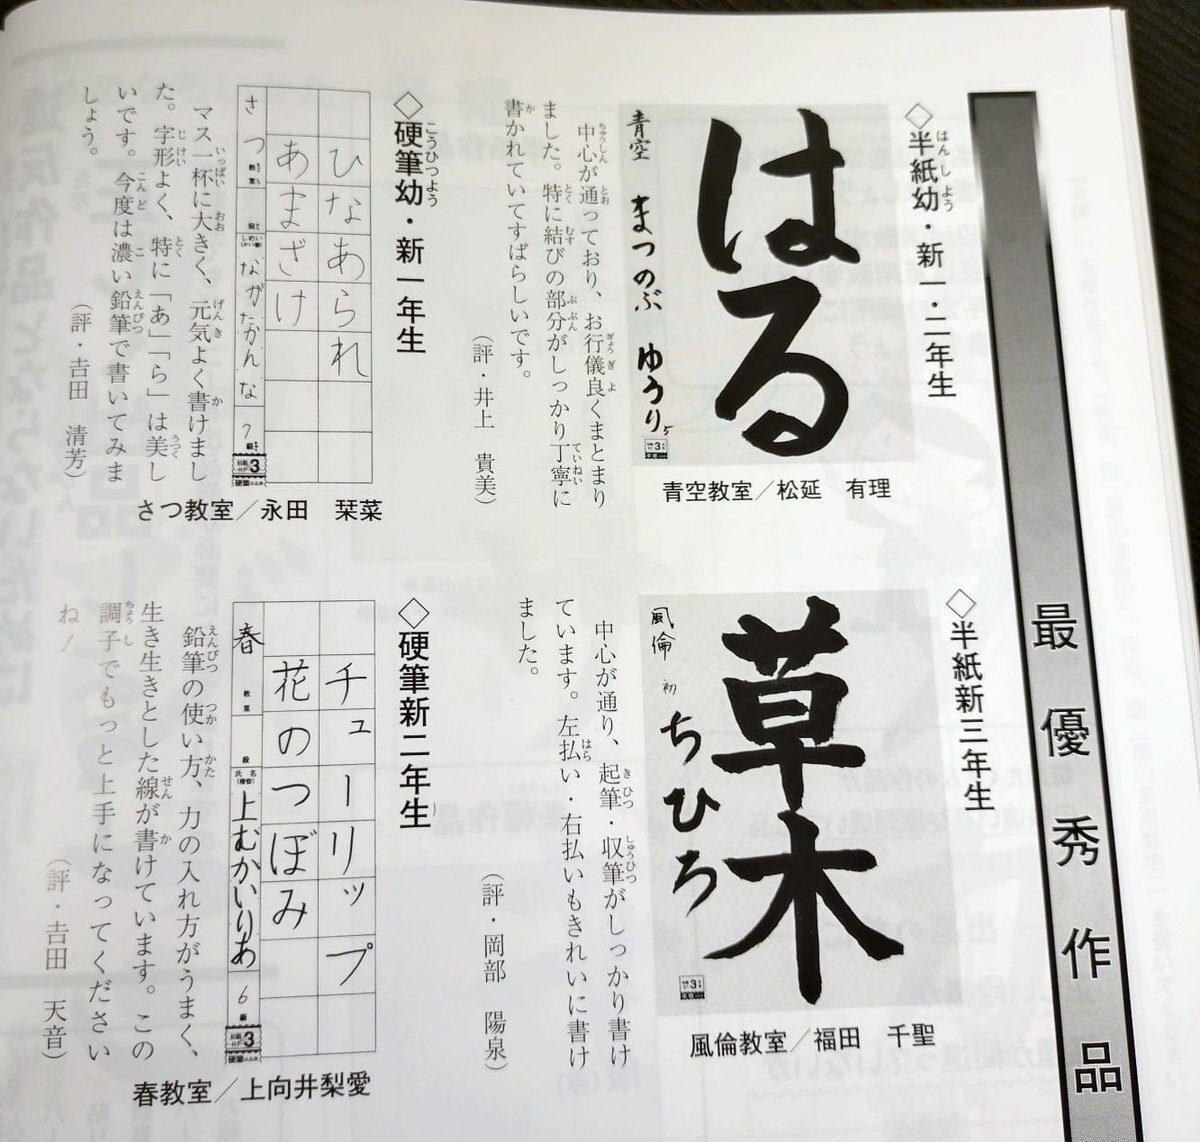 最優秀作品
◇半紙幼・新一・二年生
はる
青空 まつのぶ ゆうり
青空教室／松延 有理
中心が通っており、お行儀良くまとまり
ました。特に結びの部分がしっかり丁寧に
書かれていてすばらしいです。
（評・井上 貴美）
◇硬筆幼・新一年生
ひなあられ
あまざけ
さつ 教室 段 ながたかんな 7級
さつ教室／永田 栞菜
マス一杯に大きく、元気よく書けまし
た。字形よく、特に「あ」「ら」は美し
いです。今度は濃い鉛筆で書いてみま
しょう。
（評・吉田 清芳）
◇半紙新三年生
草木
風倫 初 ちひろ
風倫教室／福田 千聖
中心が通り、起筆・収筆がしっかり書け
ています。左払い・右払いもきれいに書け
ました。
（評・岡部 陽泉）
◇硬筆新二年生
チューリップ
花のつぼみ
春 教室 段 氏名 上むかいりあ 6級
春教室／上向井梨愛
鉛筆の使い方、力の入れ方がうまく、
生き生きとした線が書けています。この
調子でもっと上手になってください
ね！
（評・吉田 天音）